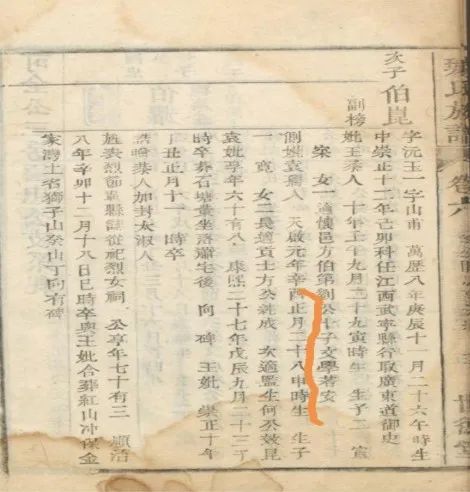 氏族譜 卷六
次子 伯崑
字沅玉一字山甫 萬歷八年庚辰十一月二十六年時生
中崇正十二年己卯科任江西武寧縣行取廣東道御史
副榜
妣王恭人 十年壬午九月二十九寅時生 生子二 宣
寀 女一適懷邑方伯第劉公七子文學著安
側妣袁孺人 天啟元年辛酉正月二十八申時生 生子
一 寬 女二長適貢士方公兆成 次適監生何公效昆
袁妣享年六十有八 康熙二十七年戊辰九月二十三
時卒葬石塘彙坐落蕭宅後 向碑 王妣 崇正十年
丁丑正月十 時卒
誥贈恭人加封太淑人
旌表烈節 縣誌從祀烈女祠 公享年七十有三 順治
八年辛卯十二月十八日巳時卒與王妣合葬紅山冲保金
家灣土名獅子山癸山丁向有碑